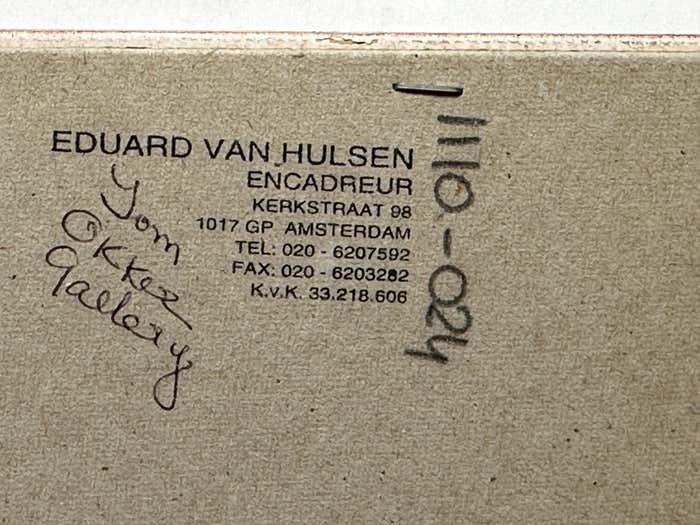 EDUARD VAN HULSEN
ENCADREUR
KERKSTRAAT 98
1017 GP AMSTERDAM
TEL: 020 - 6207592
FAX: 020 - 6203282
K.v.K. 33.218.606
Yom
Okker
Gallery
1110-024